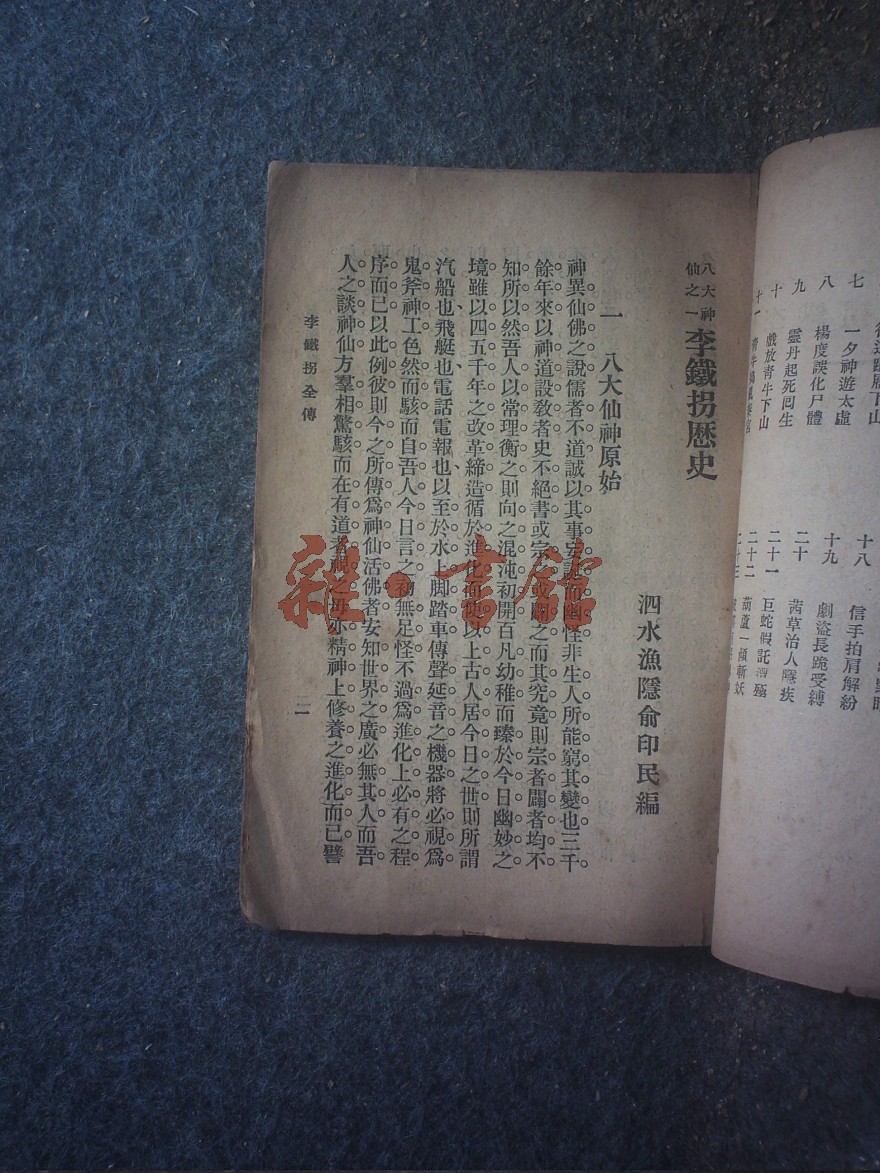 下山
七 一夕神遊太虛
八 楊度誤化尸體
九 靈丹起死囘生
十 戲放青牛下山
十一 青牛
十八 信手拍肩解紛
十九 劇盜長跪受縛
二十 茜草治人隱疾
二十一 巨蛇假託
二十二 葫蘆一傾斬妖
二十三
八大神仙之一 李鐵拐歷史
泗水漁隱俞印民編
一 八大仙神原始
神異仙佛之說儒者不道誠以其事幽怪非生人所能窮其變也三千
餘年來以神道設敎者史不絕書或宗之或闢之而其究竟則宗者闢者均不
知所以然吾人以常理衡之則向之混沌初開百凡幼稚而臻於今日幽妙之
境雖以四五千年之改革締造循於進化而使以上古人居今日之世則所謂
汽船也、飛艇也、電話電報也、以至於水上脚踏車傳聲延音之機器將必視爲
鬼斧神工色然而駭而自吾人今日言之初無足怪不過爲進化上必有之程
序而已以此例彼則今之所傳爲神仙活佛者安知世界之廣必無其人而吾
人之談神仙方羣相驚駭而在有道者視之毋亦精神上修養之進化而已譬
李鐵拐全傳
二
雜·書館